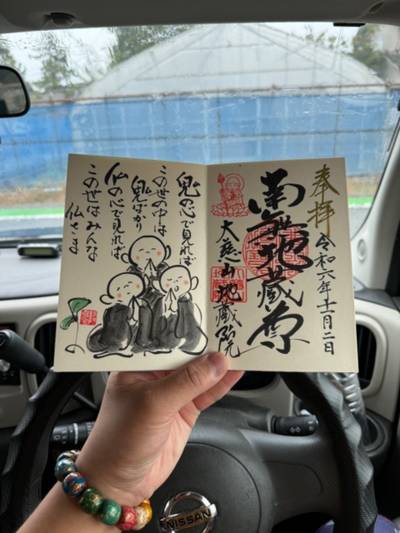 奉拝
令和六年十一月二日
南無地蔵尊
大慈山地蔵院
鬼の心で見れば
この世の中は
鬼ばかり
仏の心で見れば
この世はみんな
仏さま
NISSAN